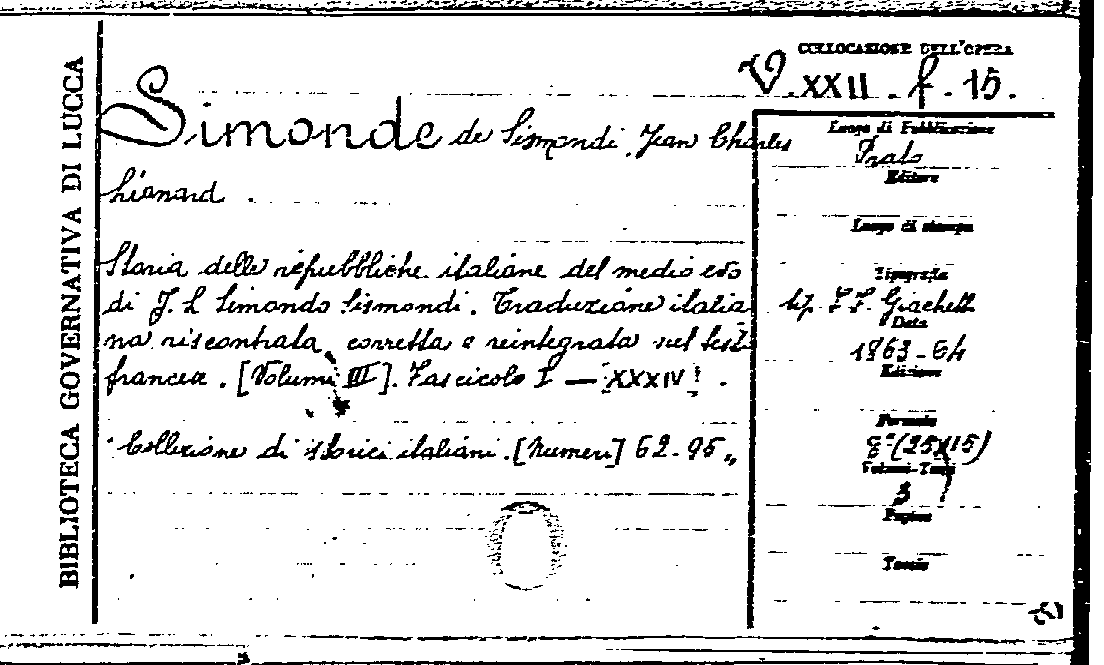 BIBLIOTECA GOVERNATIVA DI LUCCA
COLLOCAZIONE DELL'OPERA
V. XXII. f. 15.
Simonde de Sismondi Jean Charles
Lèonard
Storia delle repubbliche italiane del medio evo
di J. L Simondo Sismondi. Traduzione italia
na riscontrata, corretta e reintegrata sul testo
francese. [Volumi III]. Fascicolo I — XXXIV.
"Collezione di storici italiani. [Numeri] 62-95"
Luogo di Pubblicazione
Prato
Editore
Luogo di stampa
Tipografia
tip. F.F. Giachetti
Data
1863-64
Edizione
Formato
8° (25x15)
Volumi-Tomi
3
Pagine
Tavole